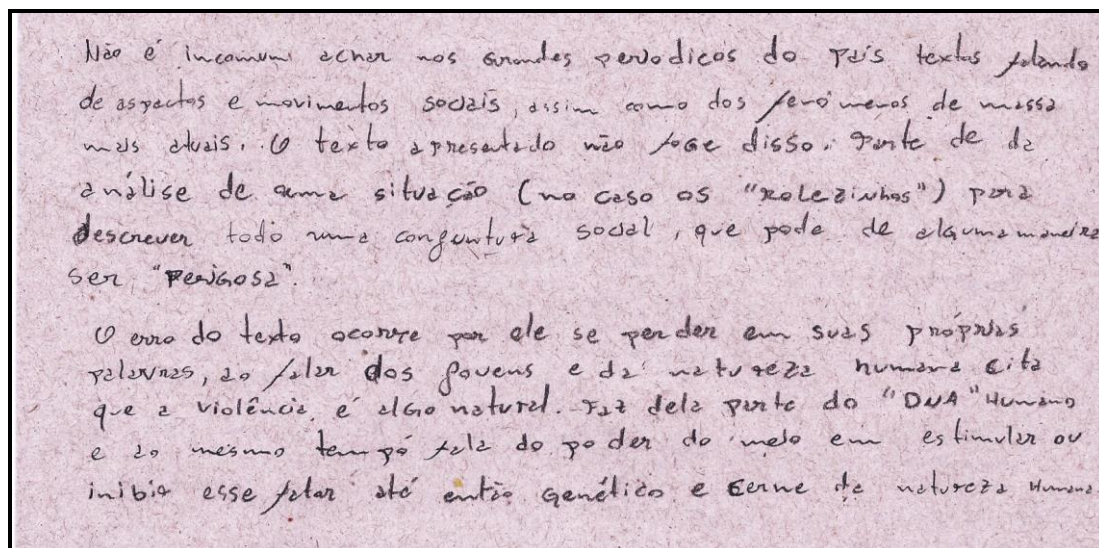 Não é incomum achar nos grandes periodicos do país textos falando
de aspectos e movimentos sociais, assim como dos fenômenos de massa
mais atuais. O texto apresentado não foge disso. Parte de da
análise de uma situação (no caso os "Rolezinhos") para
descrever todo uma conjuntura social, que pode de alguma maneira
ser "Perigosa".
O erro do texto ocorre por ele se perder em suas próprias
palavras, ao falar dos jovens e da natureza humana cita
que a violência é algo natural. Faz dela parte do "DNA" Humano
e ao mesmo tempo fala do poder do meio em estimular ou
inibir esse fator até então genético e cerne da natureza Humana.